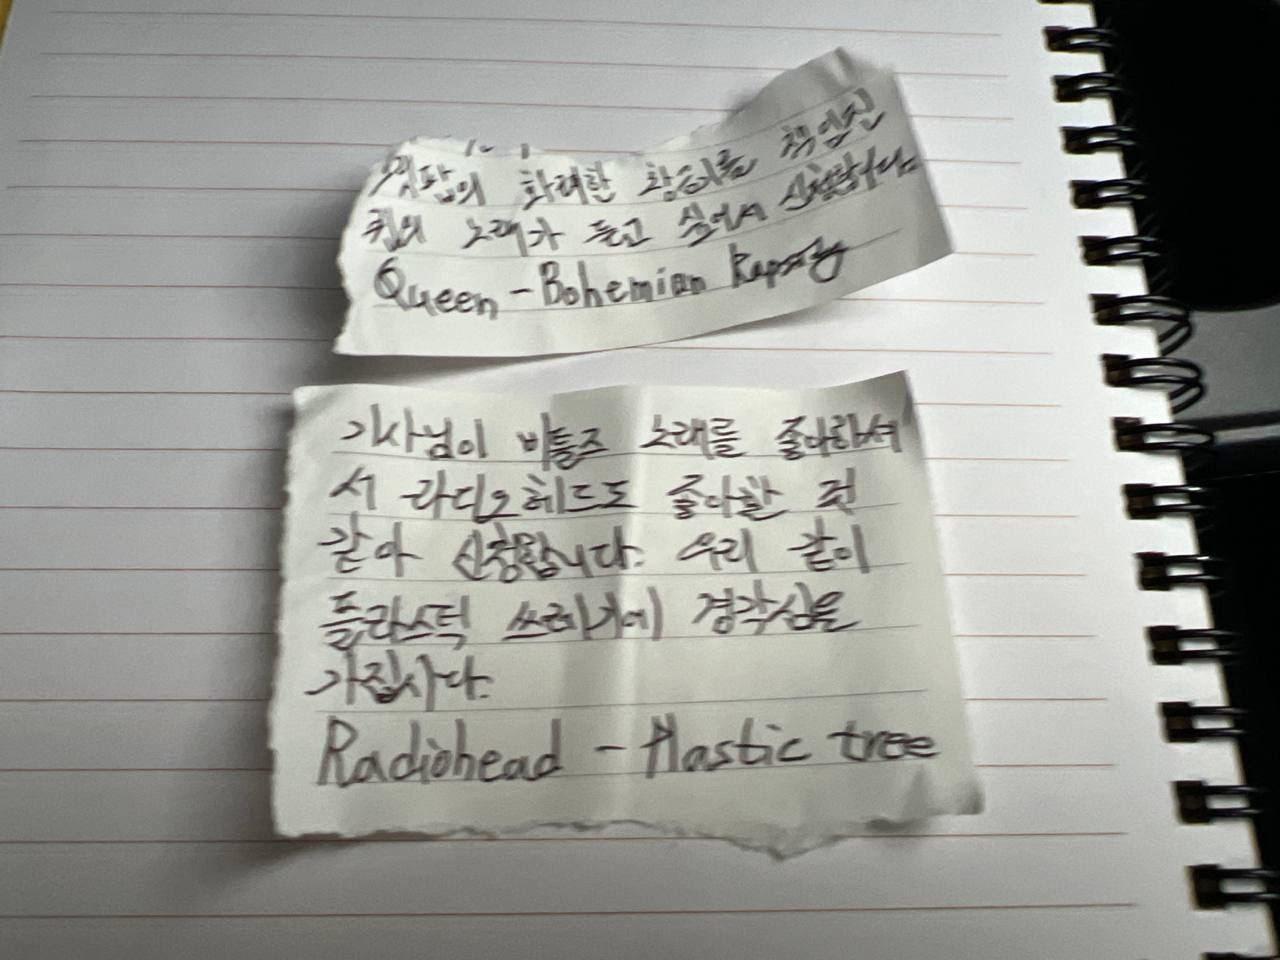 팝의 화려한 황금기를 책임진
퀸의 노래가 듣고 싶어서 신청합니다.
Queen - Bohemian Rapsody
기사님이 비틀즈 노래를 좋아하셔
서 라디오헤드도 좋아할 것
같아 신청합니다. 우리 같이
플라스틱 쓰레기에 경각심을
가집시다.
Radiohead - Plastic tree